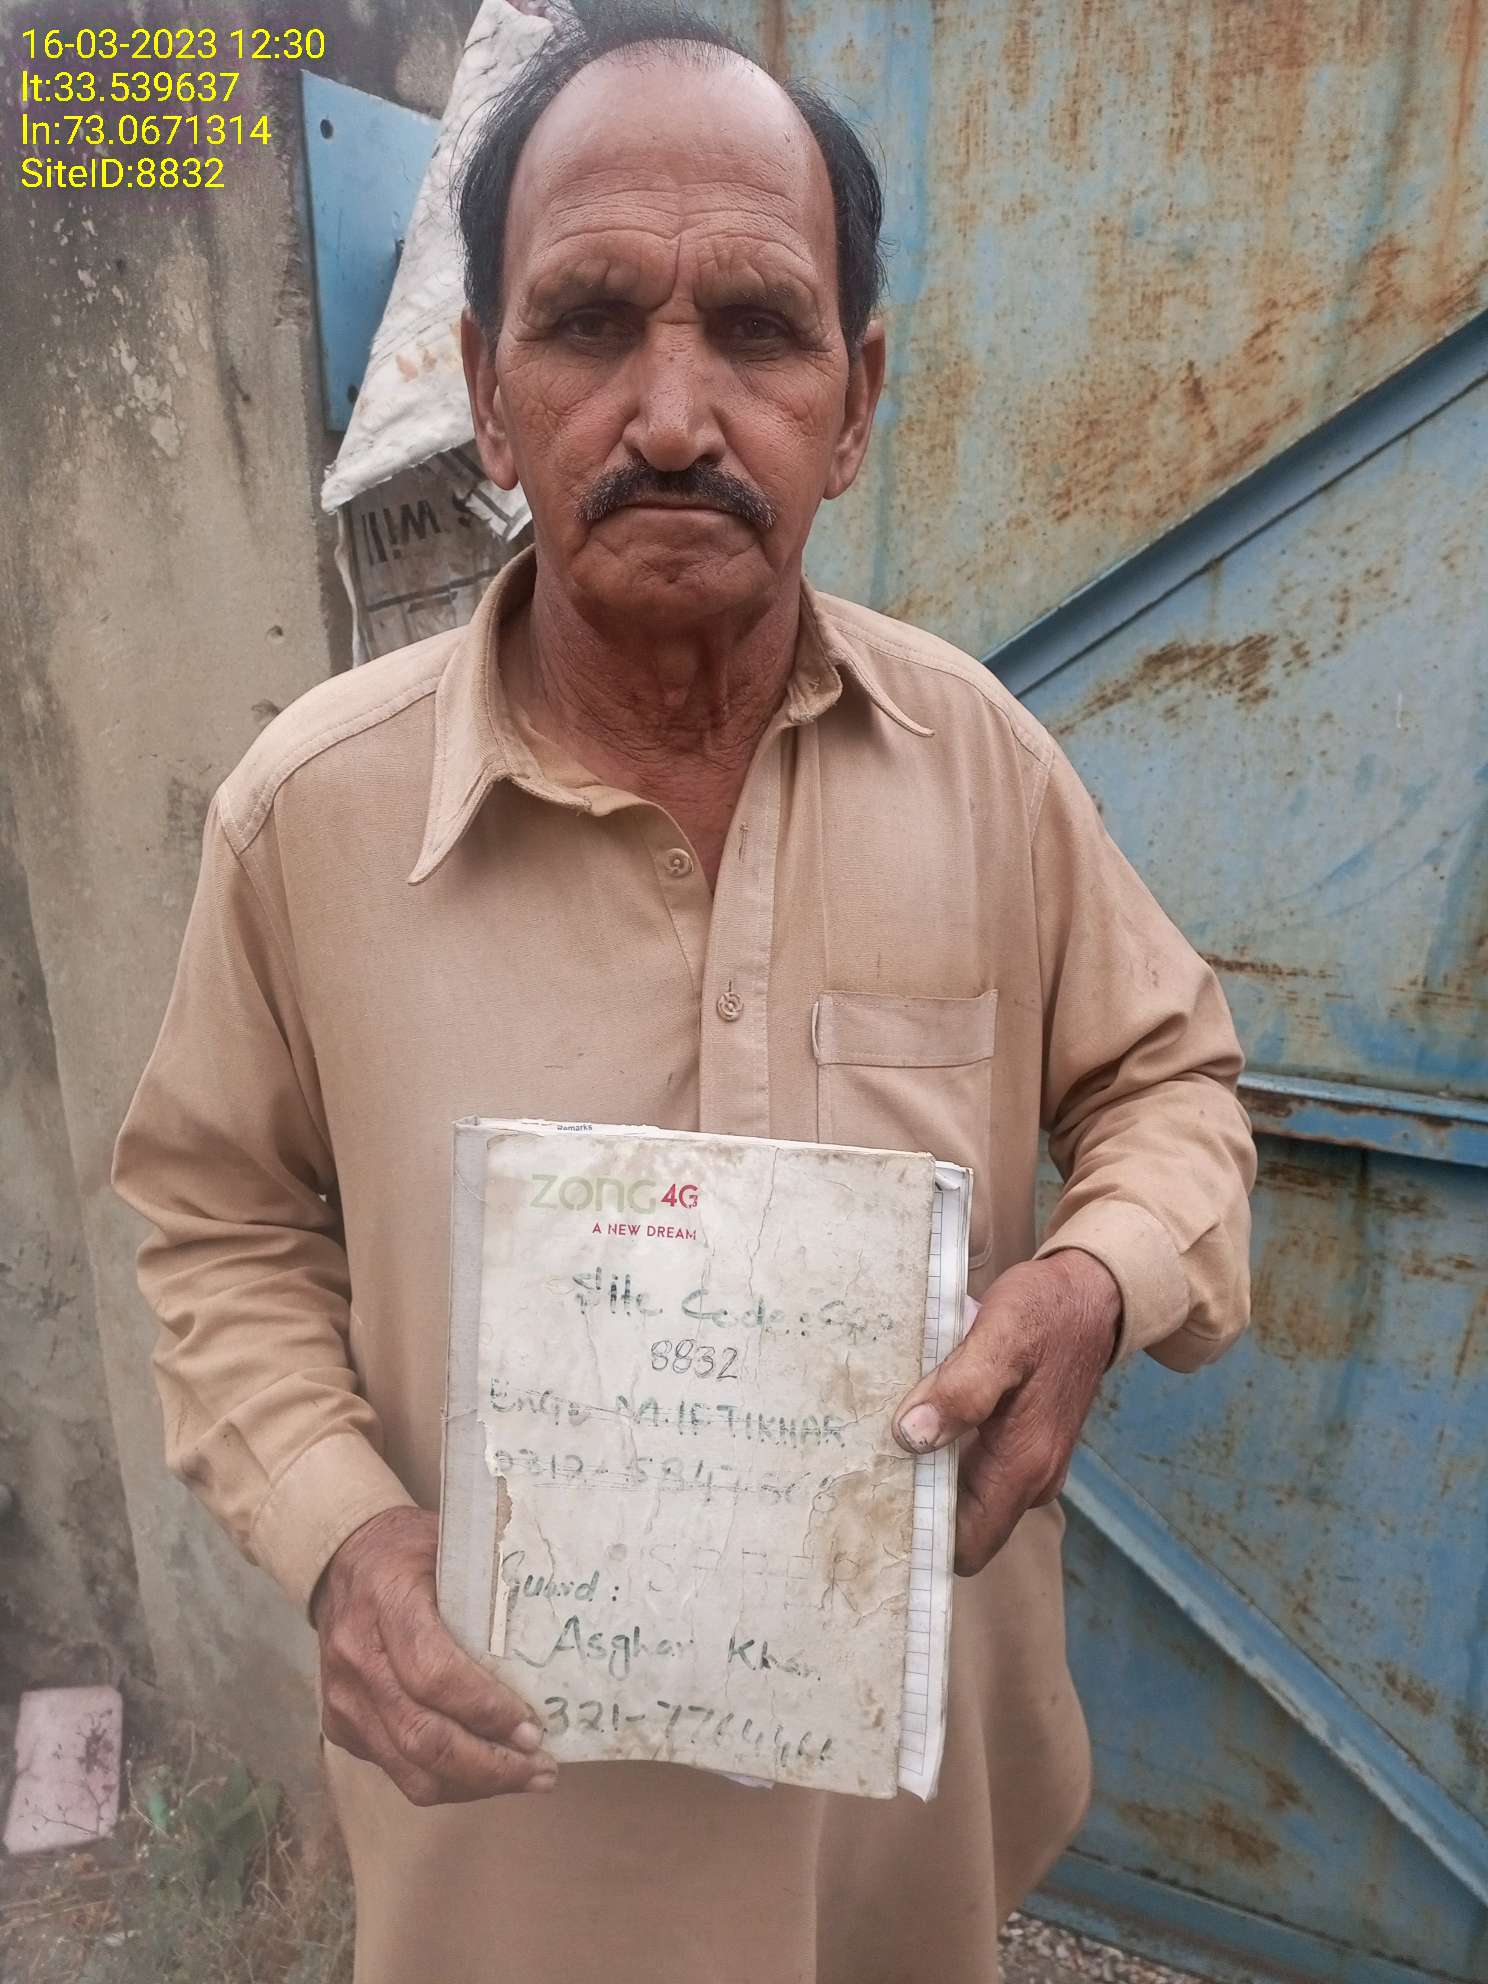 16-03-2023 12:30
lt:33.539637
ln:73.0671314
SiteID:8832
Remarks
ZONG 4G
A NEW DREAM
Site Code:
8832
Engr M. IFTIKHAR
Guard:
Asghar Khan